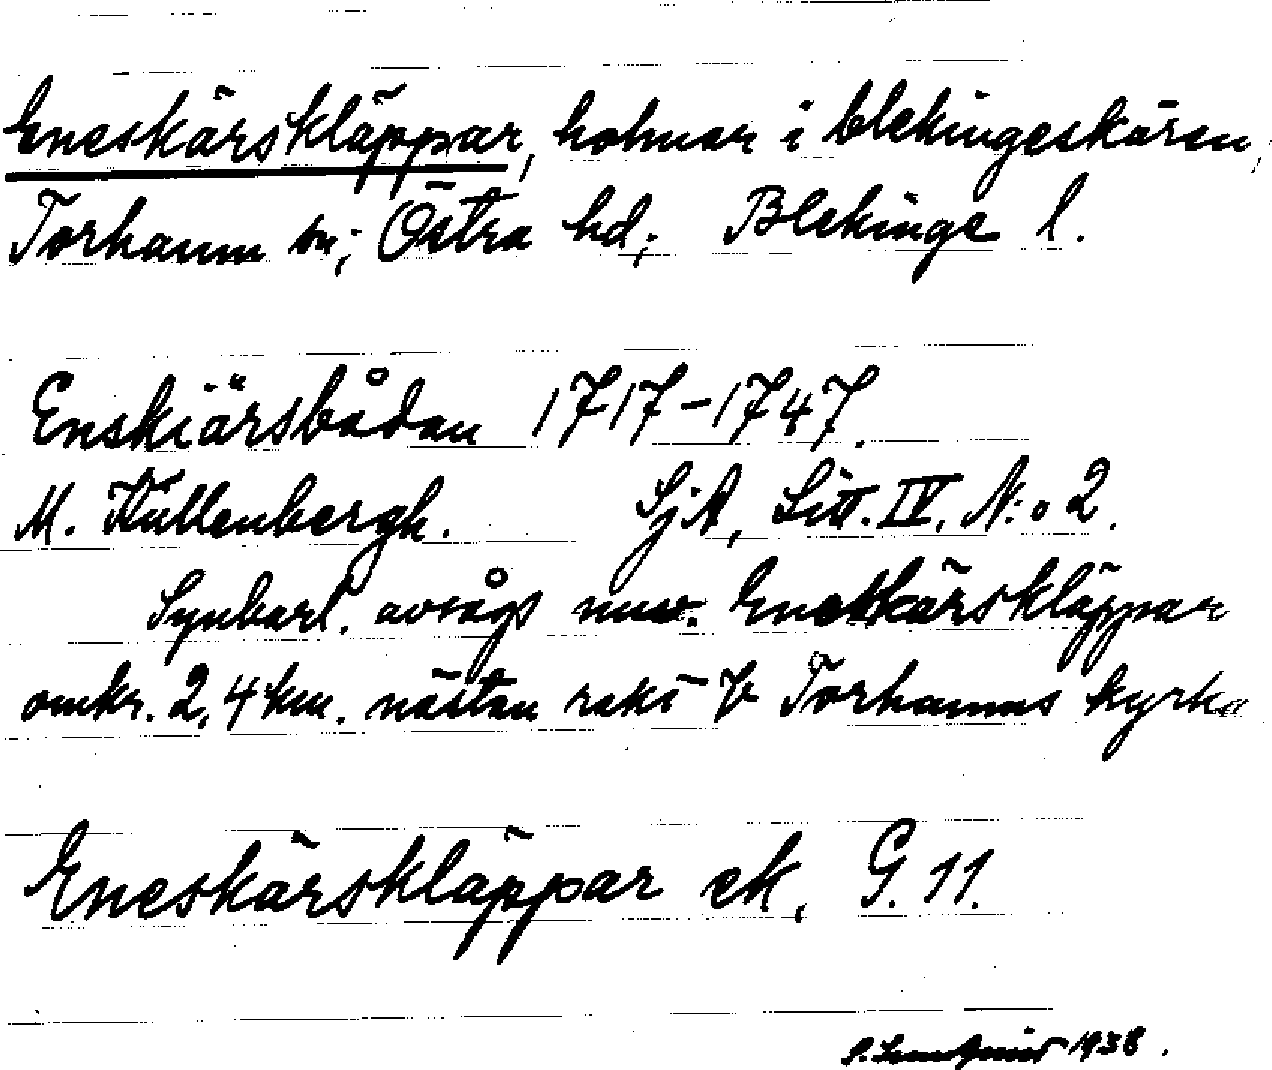 Eneskärskläppar, holmar i Blekingeskären,
Torhamn sn; Östra hd; Blekinge l.
Enskiärsbådan 1717-1747.
M. Küllenbergh. SjA, Litt. IV, N:o 2.
Synbarl. avsågs nuv. Eneskärskläppar
omkr. 2,4 km. nästan rakt V Torhamns kyrka
Eneskärskläppar ek, G. 11.
1938.